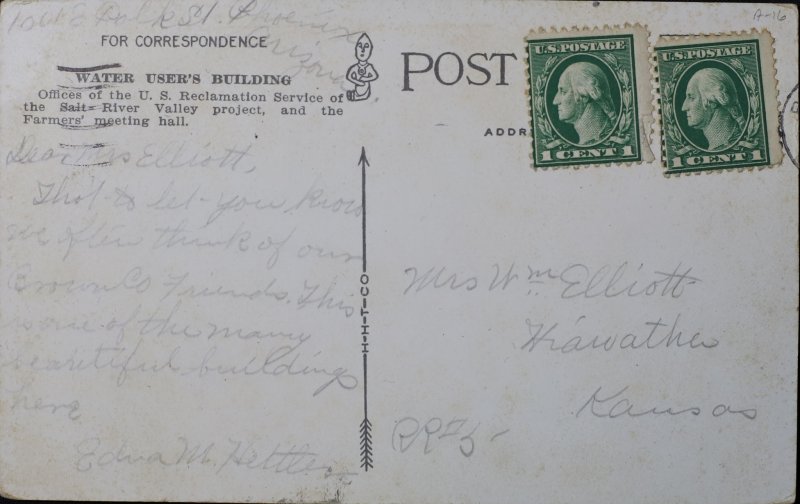 Polk St. Phoenix
Arizona
A-16
FOR CORRESPONDENCE
WATER USER'S BUILDING
Offices of the U. S. Reclamation Service of
the Salt River Valley project, and the
Farmers' meeting hall.
Dear Mrs Elliott,
Tho't to let you know
we often think of our
Brown Co Friends. This
is one of the many
beautiful buildings
here
Edna M.
H-H-T-CO
POST
ADDR
U.S. POSTAGE
1 CENT 1
U.S. POSTAGE
1 CENT 1
Mrs Wm Elliott
Hiawatha
Kansas